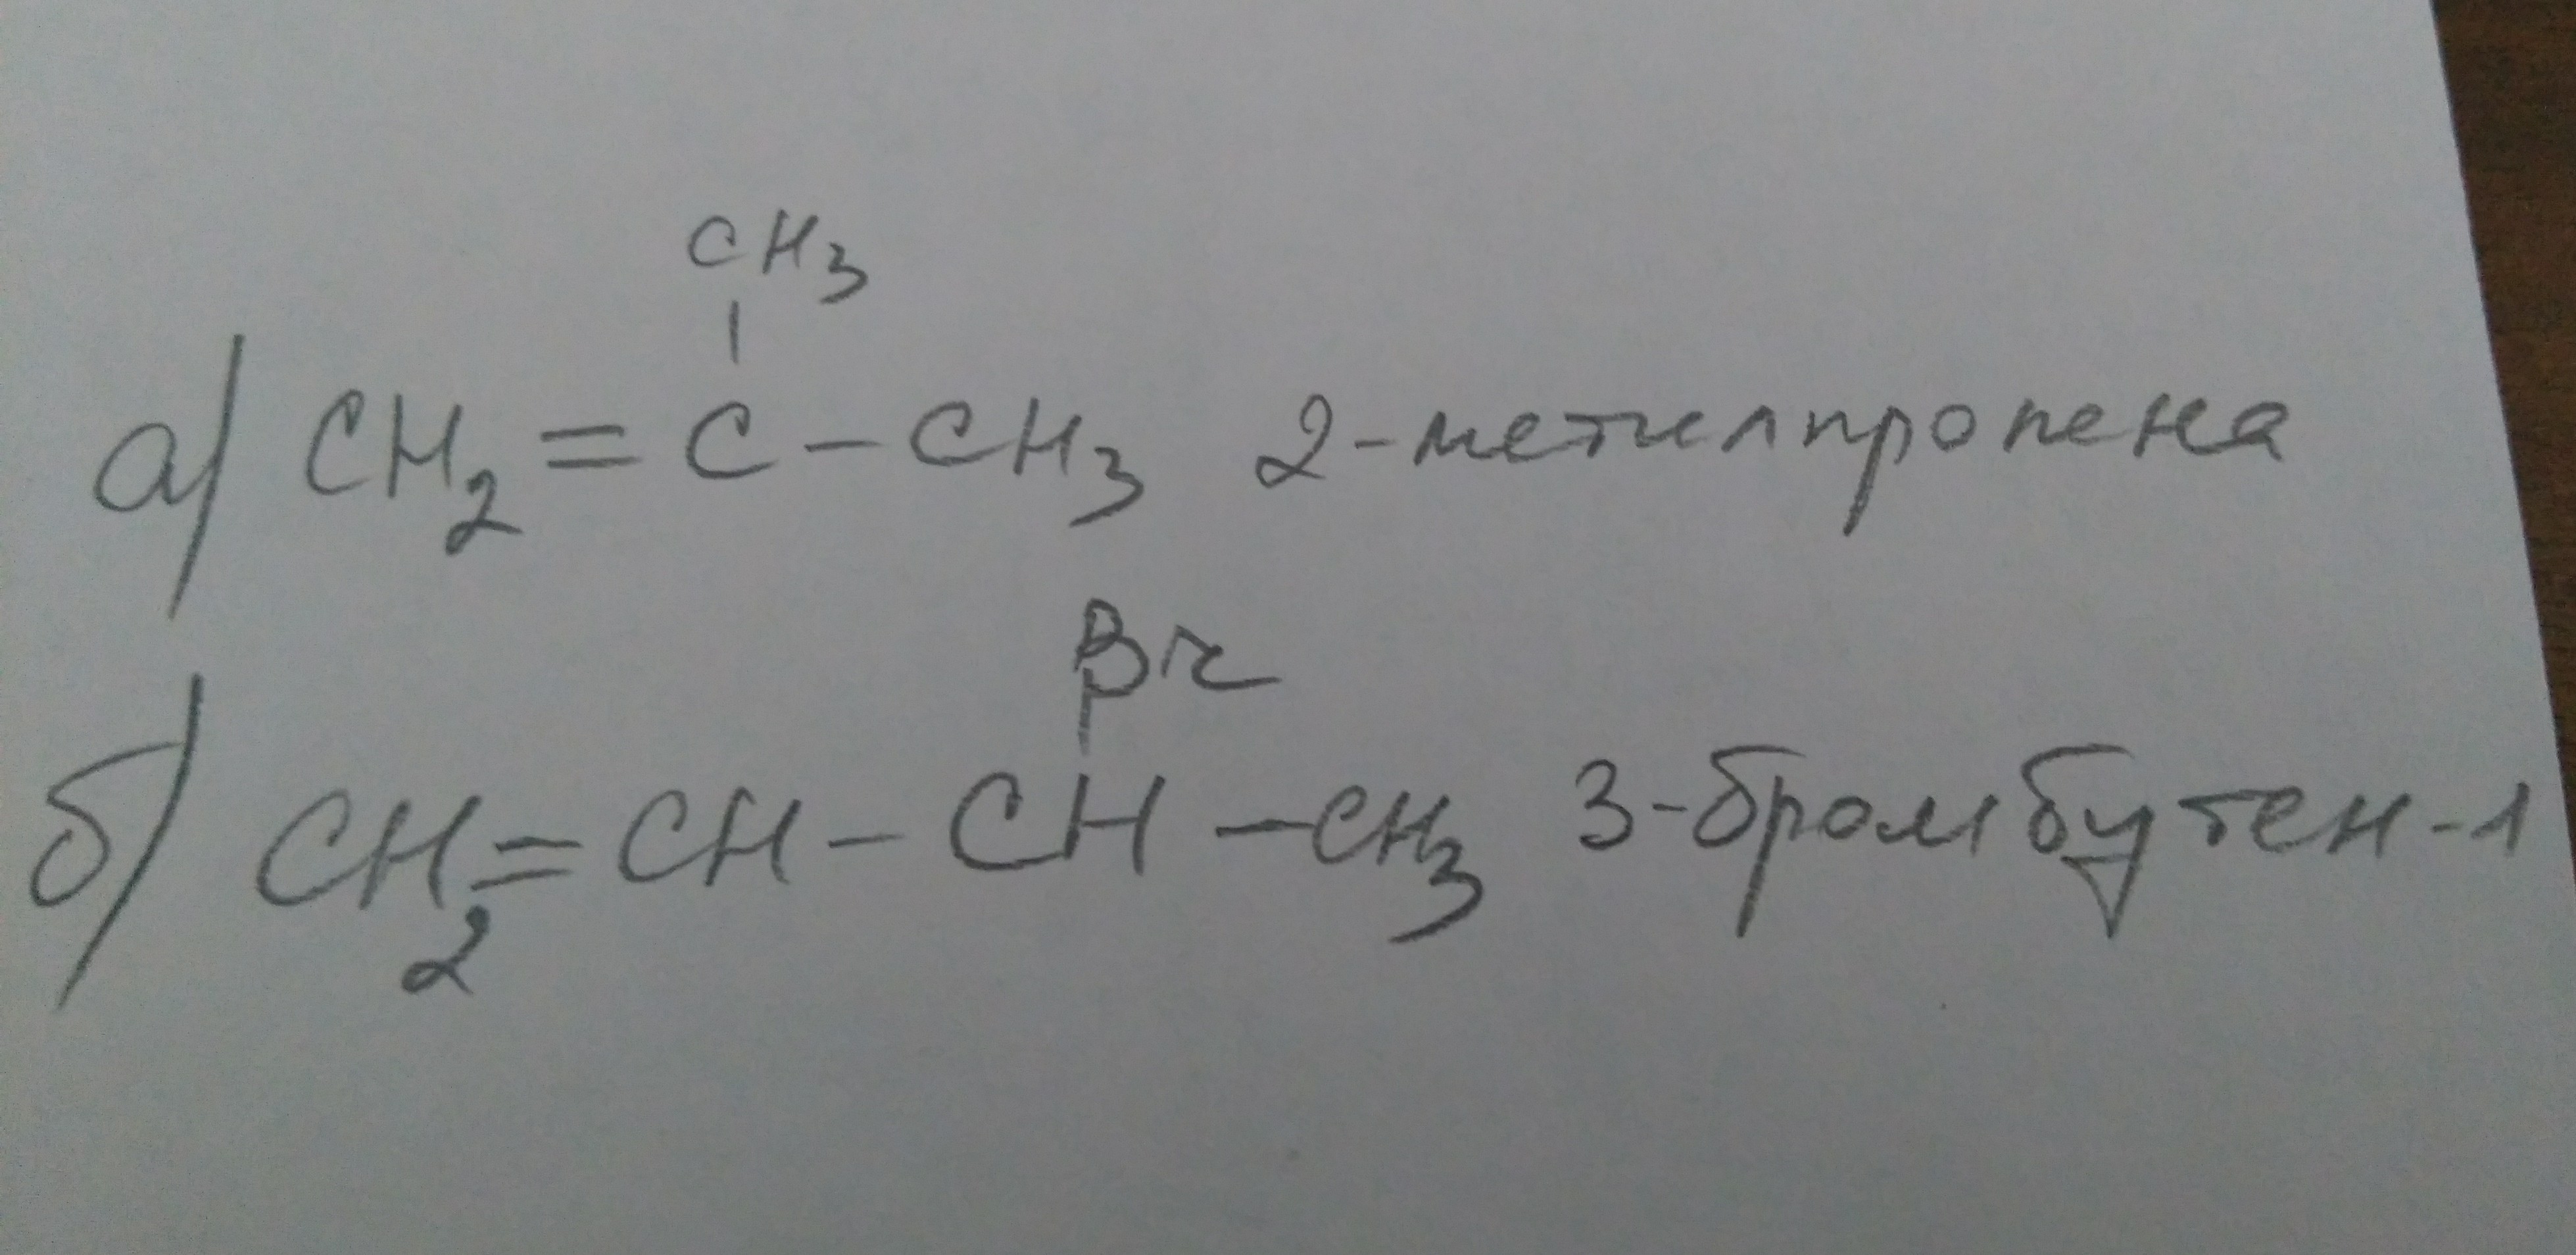 CH3
а) CH2 = C - CH3 2-метилпропена
Br
б) CH2 = CH - CH - CH3 3-бромбутен-1